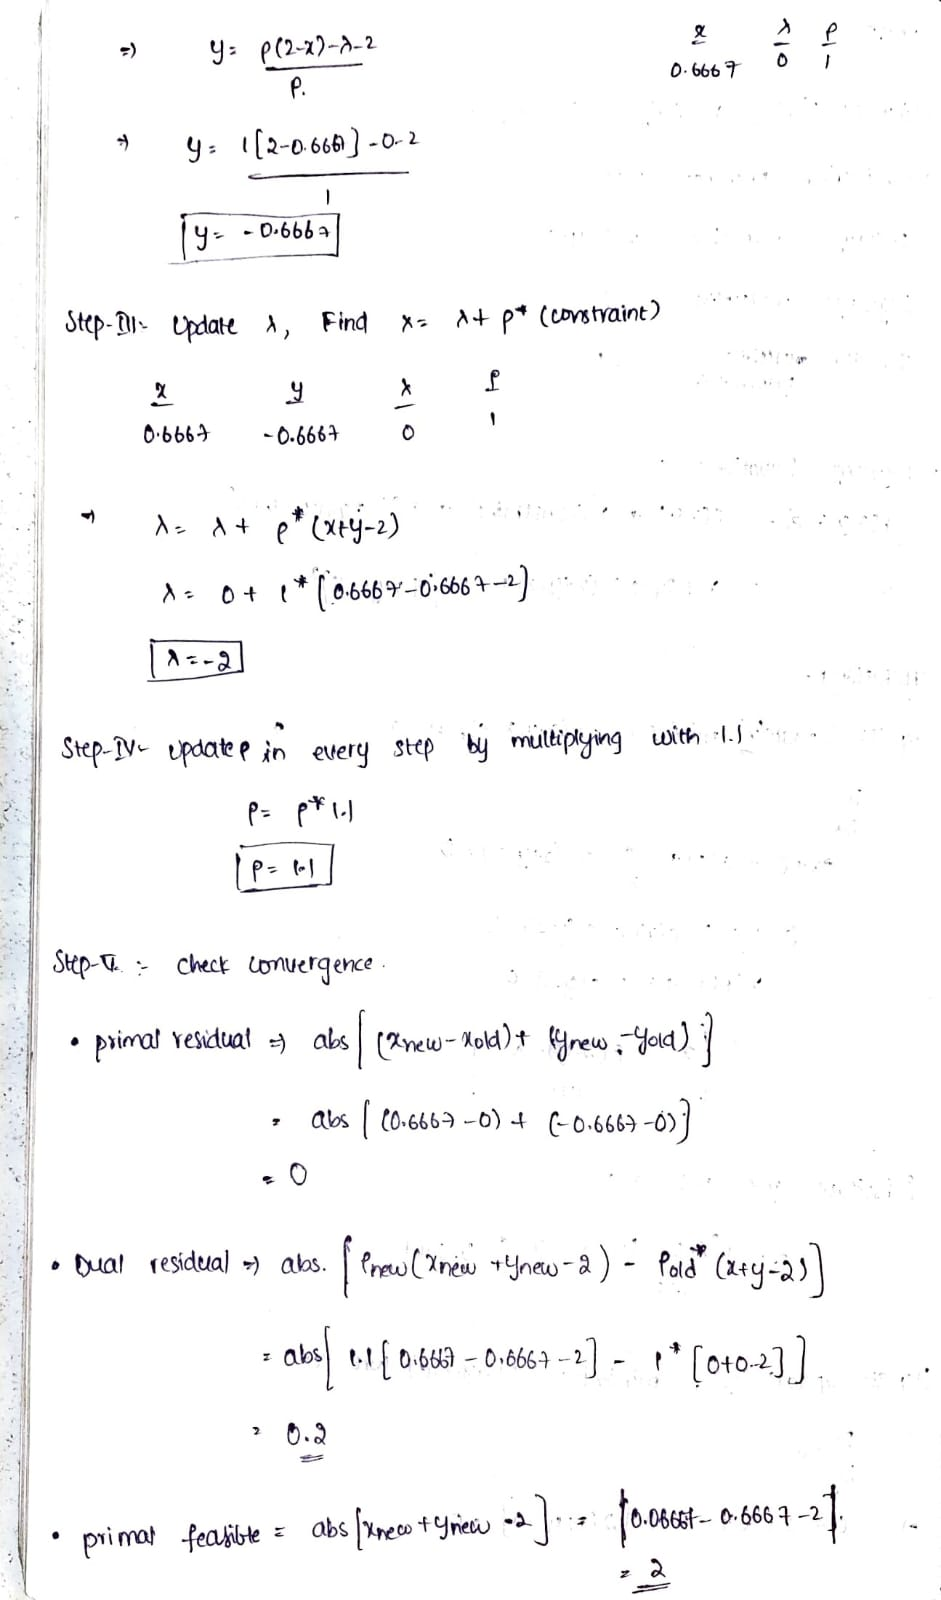 ⇒) y = ρ(2-x)-λ-2 x λ ρ
ρ. 0.6667 0 1
⇒ y = 1[2-0.6667] -0-2
1
y = -0.6667
Step-III:- Update λ, Find x = λ + ρ* (constraint)
x y λ ρ
0.6667 -0.6667 0 1
⇒ λ = λ + ρ* (x+y-2)
λ = 0 + 1* [0.6667-0.6667-2]
λ = -2
Step-IV- update ρ in every step by multiplying with 1.1
ρ = ρ* 1.1
ρ = 1.1
Step-V :- check convergence.
• primal residual ⇒ abs [(xnew - xold) + (ynew - yold)]
= abs [(0.6667-0) + (-0.6667-0)]
= 0
• Dual residual ⇒ abs. [ρnew (xnew + ynew - 2) - ρold* (x+y-2)]
= abs[ 1.1[0.6667 - 0.6667-2] - 1* [0+0-2]]
= 0.2
• primal feasible = abs [xnew + ynew -2] = [ - 0.6667-2].
= 2